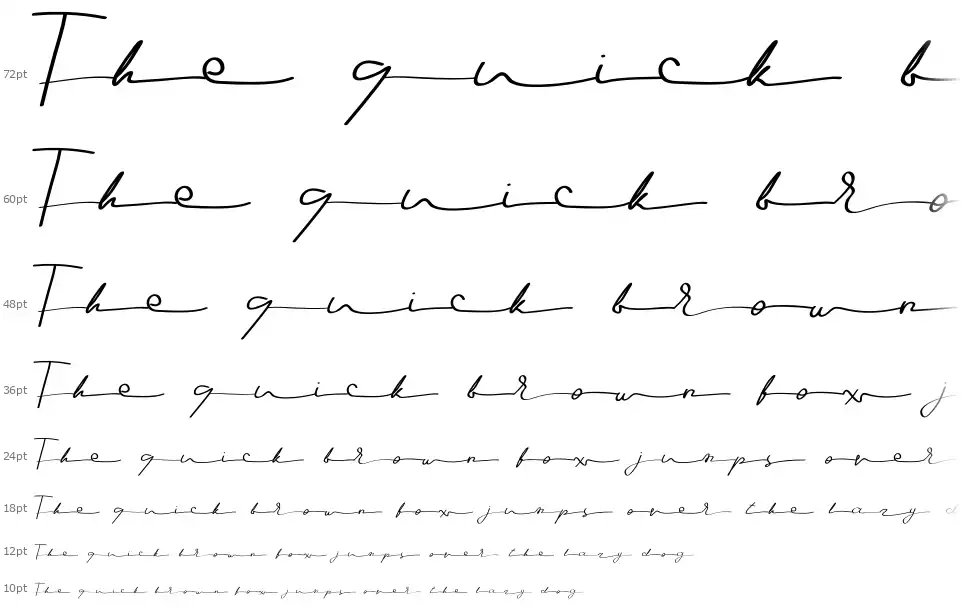 72pt The quick b
60pt The quick bro
48pt The quick brown
36pt The quick brown fox j
24pt The quick brown fox jumps over
18pt The quick brown fox jumps over the lazy d
12pt The quick brown fox jumps over the lazy dog
10pt The quick brown fox jumps over the lazy dog